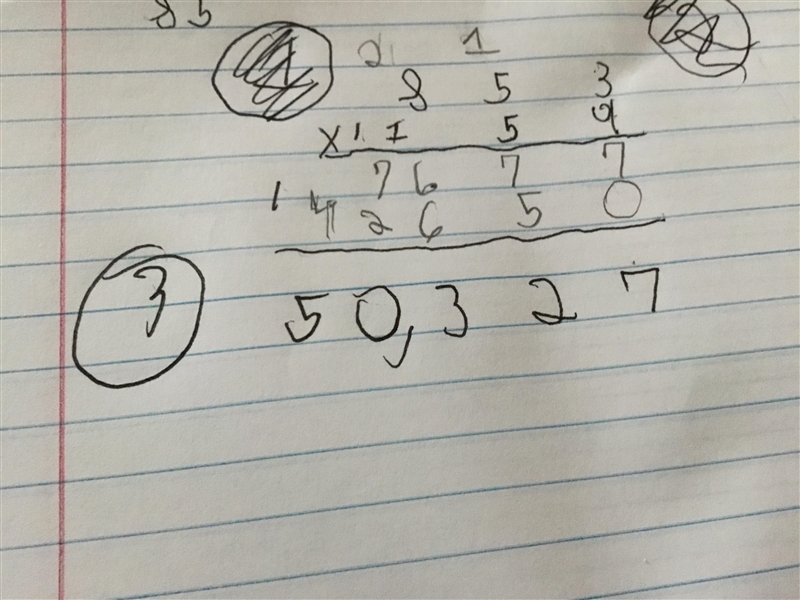 85
2 1
8 5 3
X 1 1 5 9
7 6 7 7
1
4 2 6 5 0
3 5 0, 3 2 7